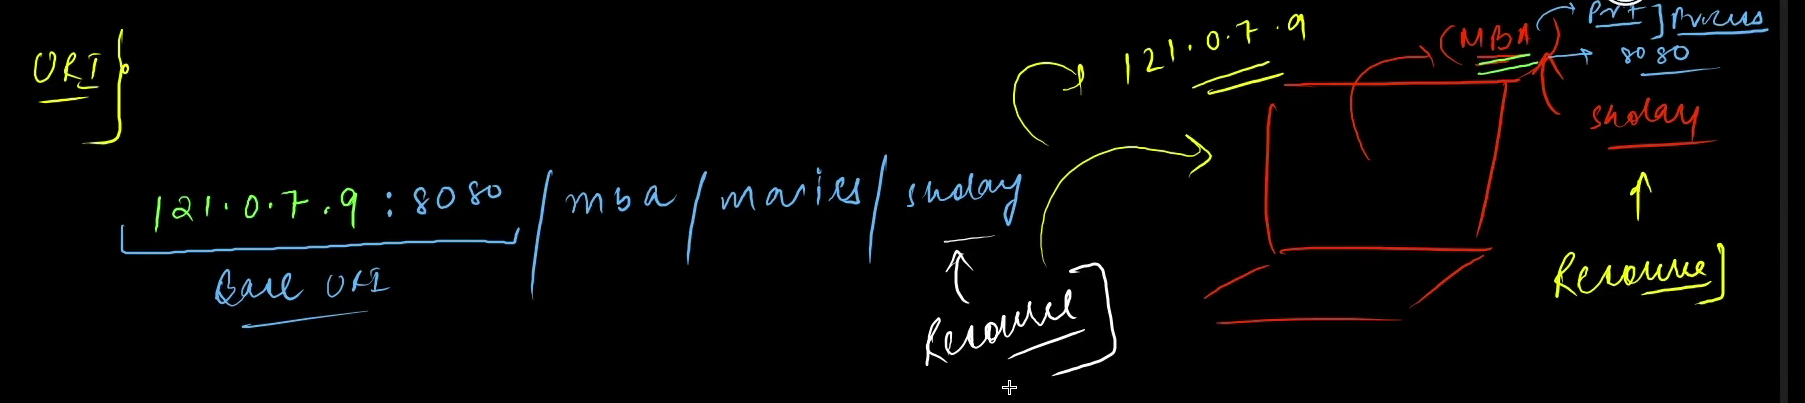 URI
121.0.7.9:8080/mba/movies/sholay
Base URI
Resource
121.0.7.9
(MBA)
Port] Process
8080
sholay
Resource]